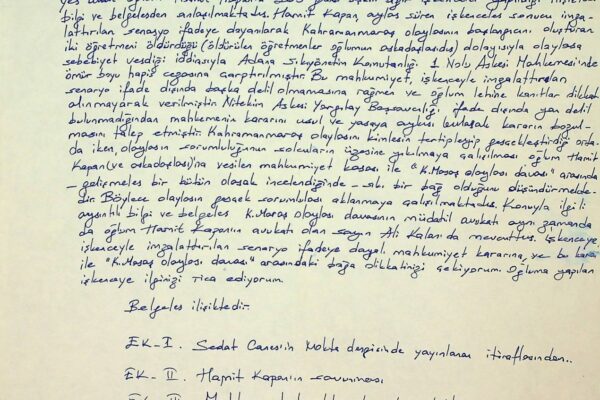 bilgi ve belgelerden anlaşılmaktadır. Hamit Kapan, aylar süren işkenceler sonucu imza-
lattırılan senaryo ifadeye dayanılarak Kahramanmaraş olaylarının başlangıcını oluşturan
iki öğretmeni öldürdüğü (öldürülen öğretmenler oğlumun arkadaşlarıdır) dolayısıyla olaylara
sebebiyet verdiği iddiasıyla Adana Sıkıyönetim Komutanlığı 1 Nolu Askeri Mahkemesi'nde
ömür boyu hapis cezasına çarptırılmıştır. Bu mahkumiyet, işkenceyle imzalattırılan
senaryo ifade dışında başka delil olmamasına rağmen ve oğlum lehine kanıtlar dikkat
alınmayarak verilmiştir. Nitekim Askeri Yargıtay Başsavcılığı ifade dışında yan delil
bulunmadığından mahkemenin kararını usul ve yasaya aykırı bularak kararın bozul-
masını talep etmiştir. Kahramanmaraş olaylarını kimlerin tertipleyip gerçekleştirdiği orta-
da iken olayların sorumluluğunun solcuların üzerine yıkılmaya çalışılması oğlum Hamit
Kapan (ve arkadaşları)'na verilen mahkumiyet kararı ile "K.Maraş olayları davası" arasında
- gelişmeler bir bütün olarak incelendiğinde - sıkı bir bağ olduğunu düşündürmekte-
dir. Böylece olayların gerçek sorumluları aklanmaya çalışılmaktadır. Konuyla ilgili
ayrıntılı bilgi ve belgeler K.Maraş olayları davasının müdahil avukatı aynı zamanda
da oğlum Hamit Kapan'ın avukatı olan sayın Ali Kalan'da mevcuttur. İşkenceye,
işkenceyle imzalattırılan senaryo ifadeye dayalı mahkumiyet kararına, ve bu karar
ile "K.Maraş olayları davası" arasındaki bağa dikkatinizi çekiyorum. Oğluma yapılan
işkenceye ilginizi rica ediyorum.
Belgeler ilişiktedir.
EK-I. Sedat Caner'in Nokta dergisinde yayınlanan itiraflarından..
EK-II. Hamit Kapan'ın savunması